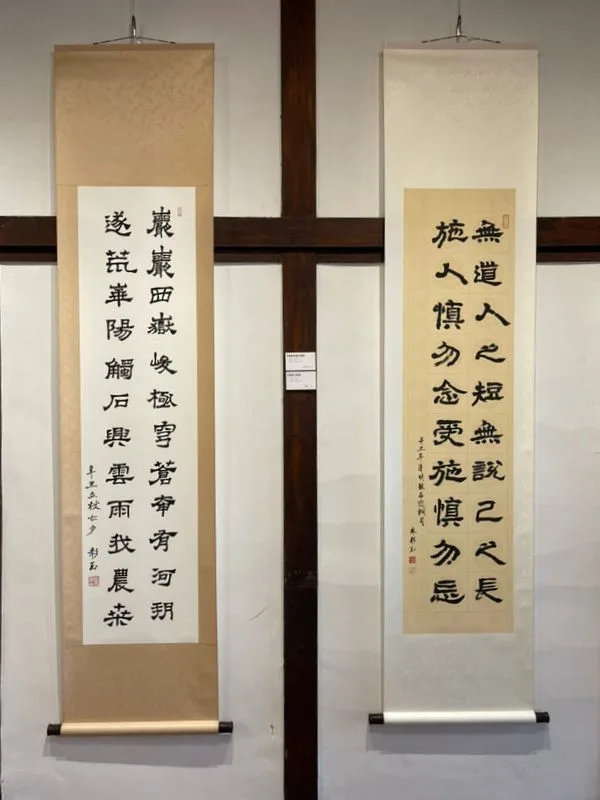 無道人之短無說己之長
施人慎勿念受施慎勿忘
辛丑年清明
巖巖西嶽峻極穹蒼奄有河朔
遂荒華陽觸石興雲雨我農桑
辛丑立秋七夕 彩玉